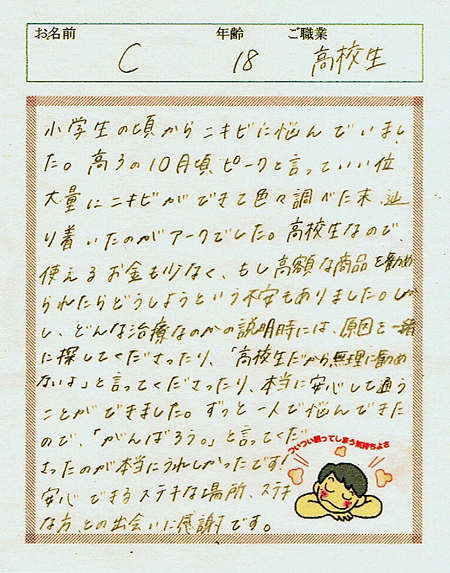 お名前 年齢 ご職業
C 18 高校生
小学生の頃からニキビに悩んでいまし
た。高3の10月頃、ピークと言っていい位
大量にニキビができて色々調べた末、辿
り着いたのがアークでした。高校生なので、
使えるお金も少なく、もし高額な商品を勧め
られたらどうしようという不安もありました。しか
し、どんな治療なのかの説明時には、原因を一緒
に探してくださったり、「高校生だから無理に勧め
ないよ」と言ってくださったり、本当に安心して通う
ことができました。ずっと一人で悩んできた
ので、「がんばろう。」と言ってくだ
さったのが本当にうれしかったです!
安心できるステキな場所、ステキ
な方との出会いに感謝です。
ついつい眠ってしまう気持ちよさ